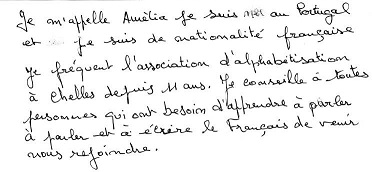 Je m'appelle Amèlia Je suis née au Portugal
et je suis de nationalité française
je fréquent l'association d'alphabétisation
à Chelles depuis 11 ans. Je conseille à toutes
personnes qui ont besoin d'apprendre à parler
à parler et à écrire le Français de venir
nous rejoindre.